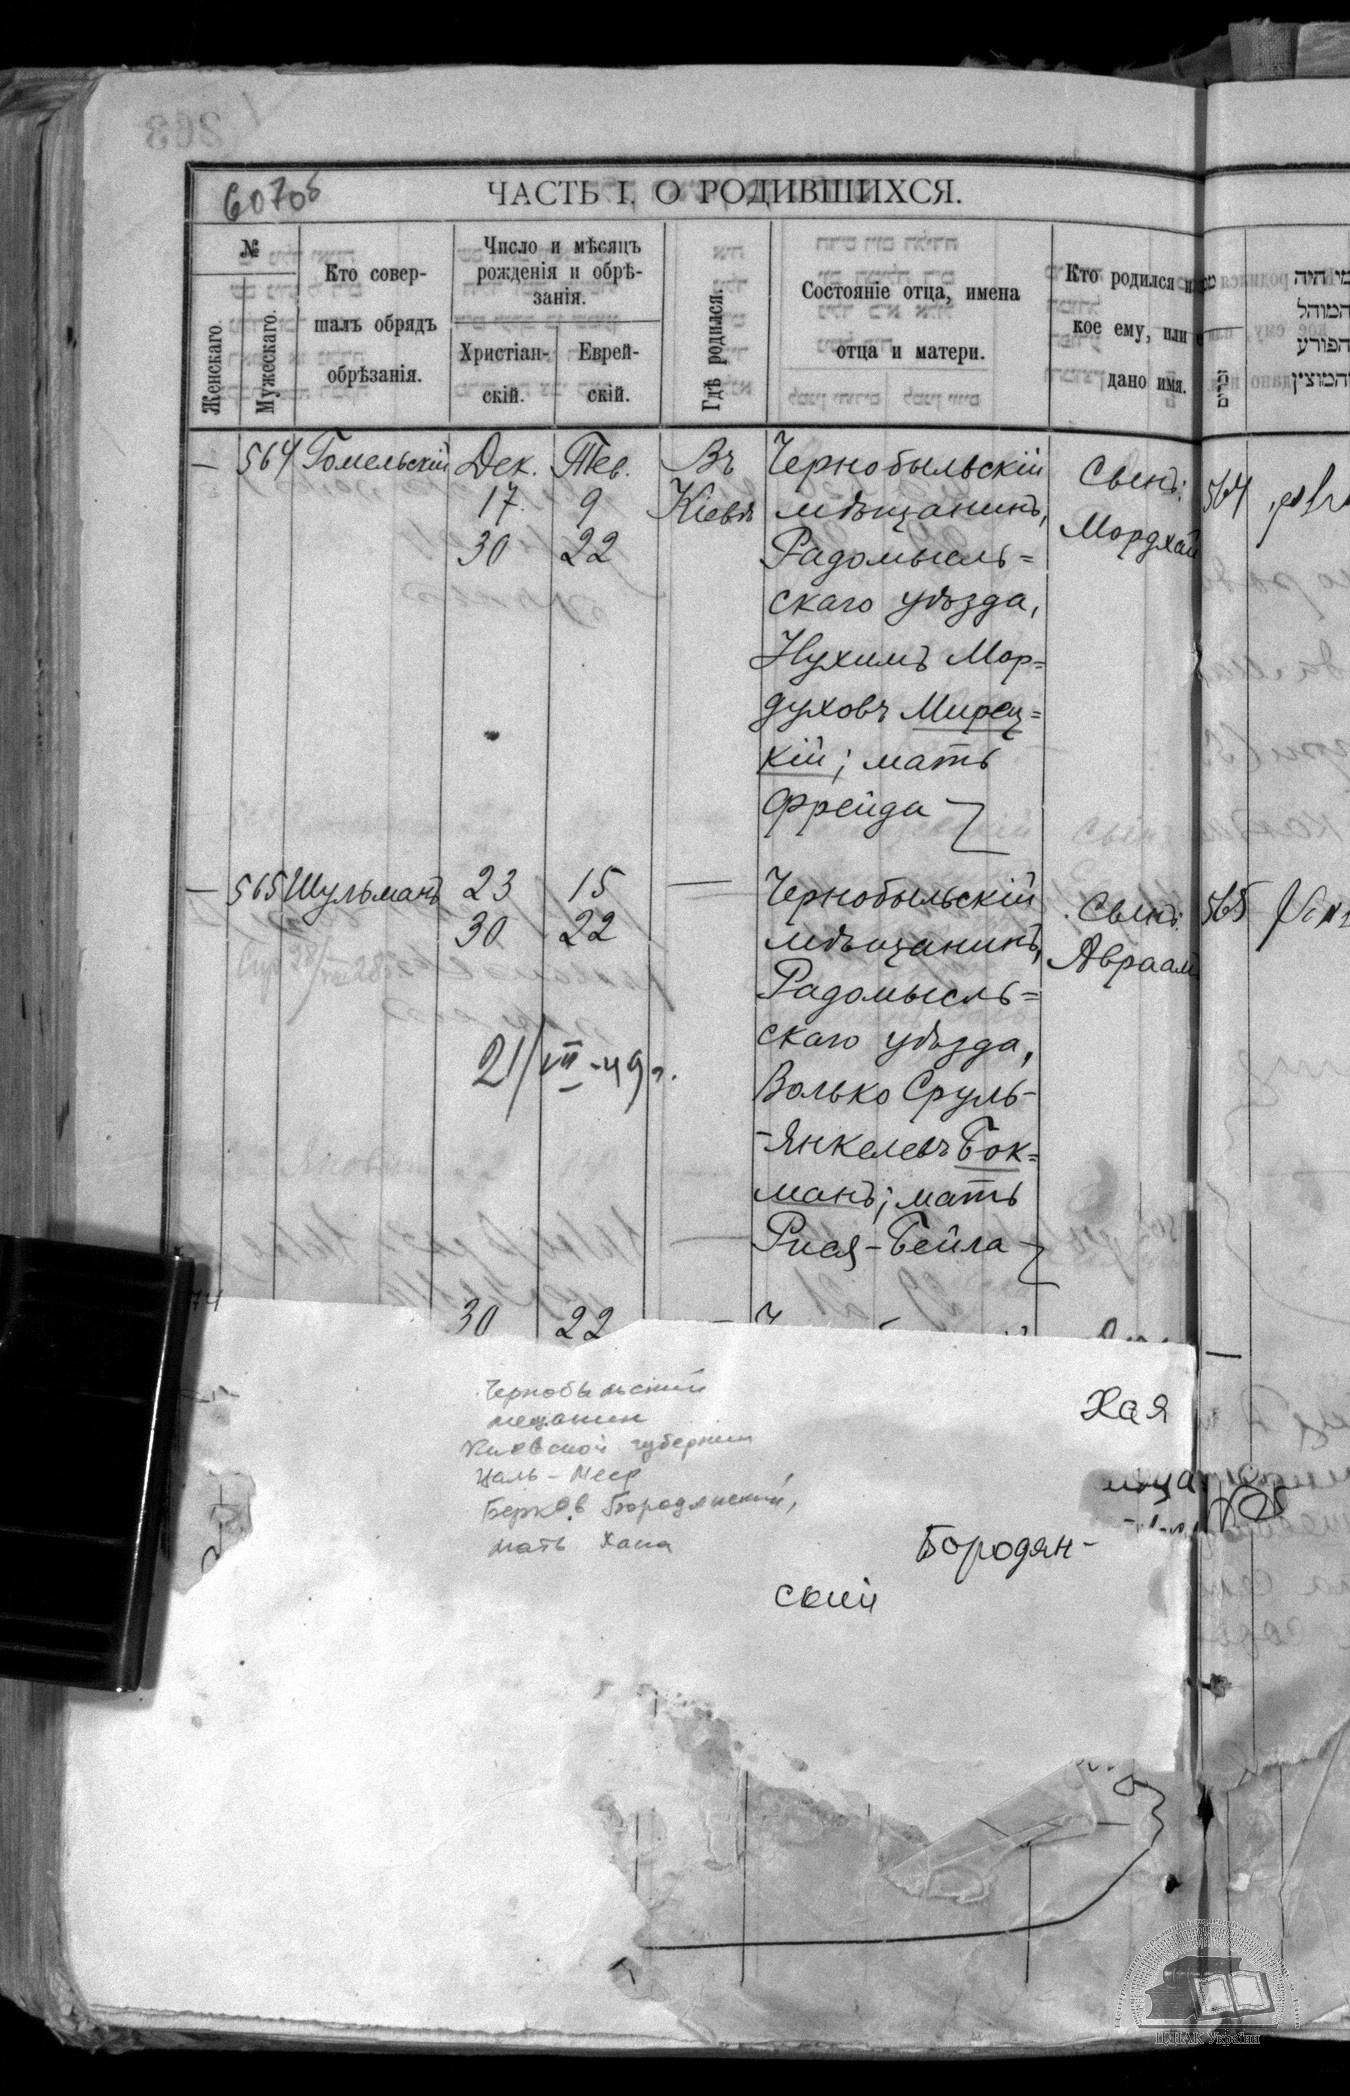 607об
ЧАСТЬ I. О РОДИВШИХСЯ.
№
Женскаго.
Мужескаго.
Кто совер-
шалъ обрядъ
обрѣзанія.
Число и мѣсяцъ
рожденія и обрѣ-
занія.
Христіан-
скій.
Еврей-
скій.
Гдѣ родился.
Состояніе отца, имена
отца и матери.
Кто родился и
кое ему, или е
дано имя.
— 564 Гомельскій
Дек.
17.
30
Тев.
9
22
Въ
Кіевѣ
Чернобыльскій
мѣщанинъ,
Радомысль=
скаго уѣзда,
Нухимъ Мор=
духовъ Мирец=
кій; мать
Фрейда
Сынъ:
Мордхай
564
— 565 Шульманъ
23
30
15
22
—
Чернобыльскій
мѣщанинъ,
Радомысль=
скаго уѣзда,
Волько Сруль-
-Янкелевъ Бок=
манъ; мать
Рися-Бейла
Сынъ:
Авраам
565
21/VII-49г.
74
30
22
Чернобыльский
мещанин
Киевской губернии
Цаль-Меер
Берков Бородянский,
мать Хана
Хая
Бородян-
ский
ЦДІАК України